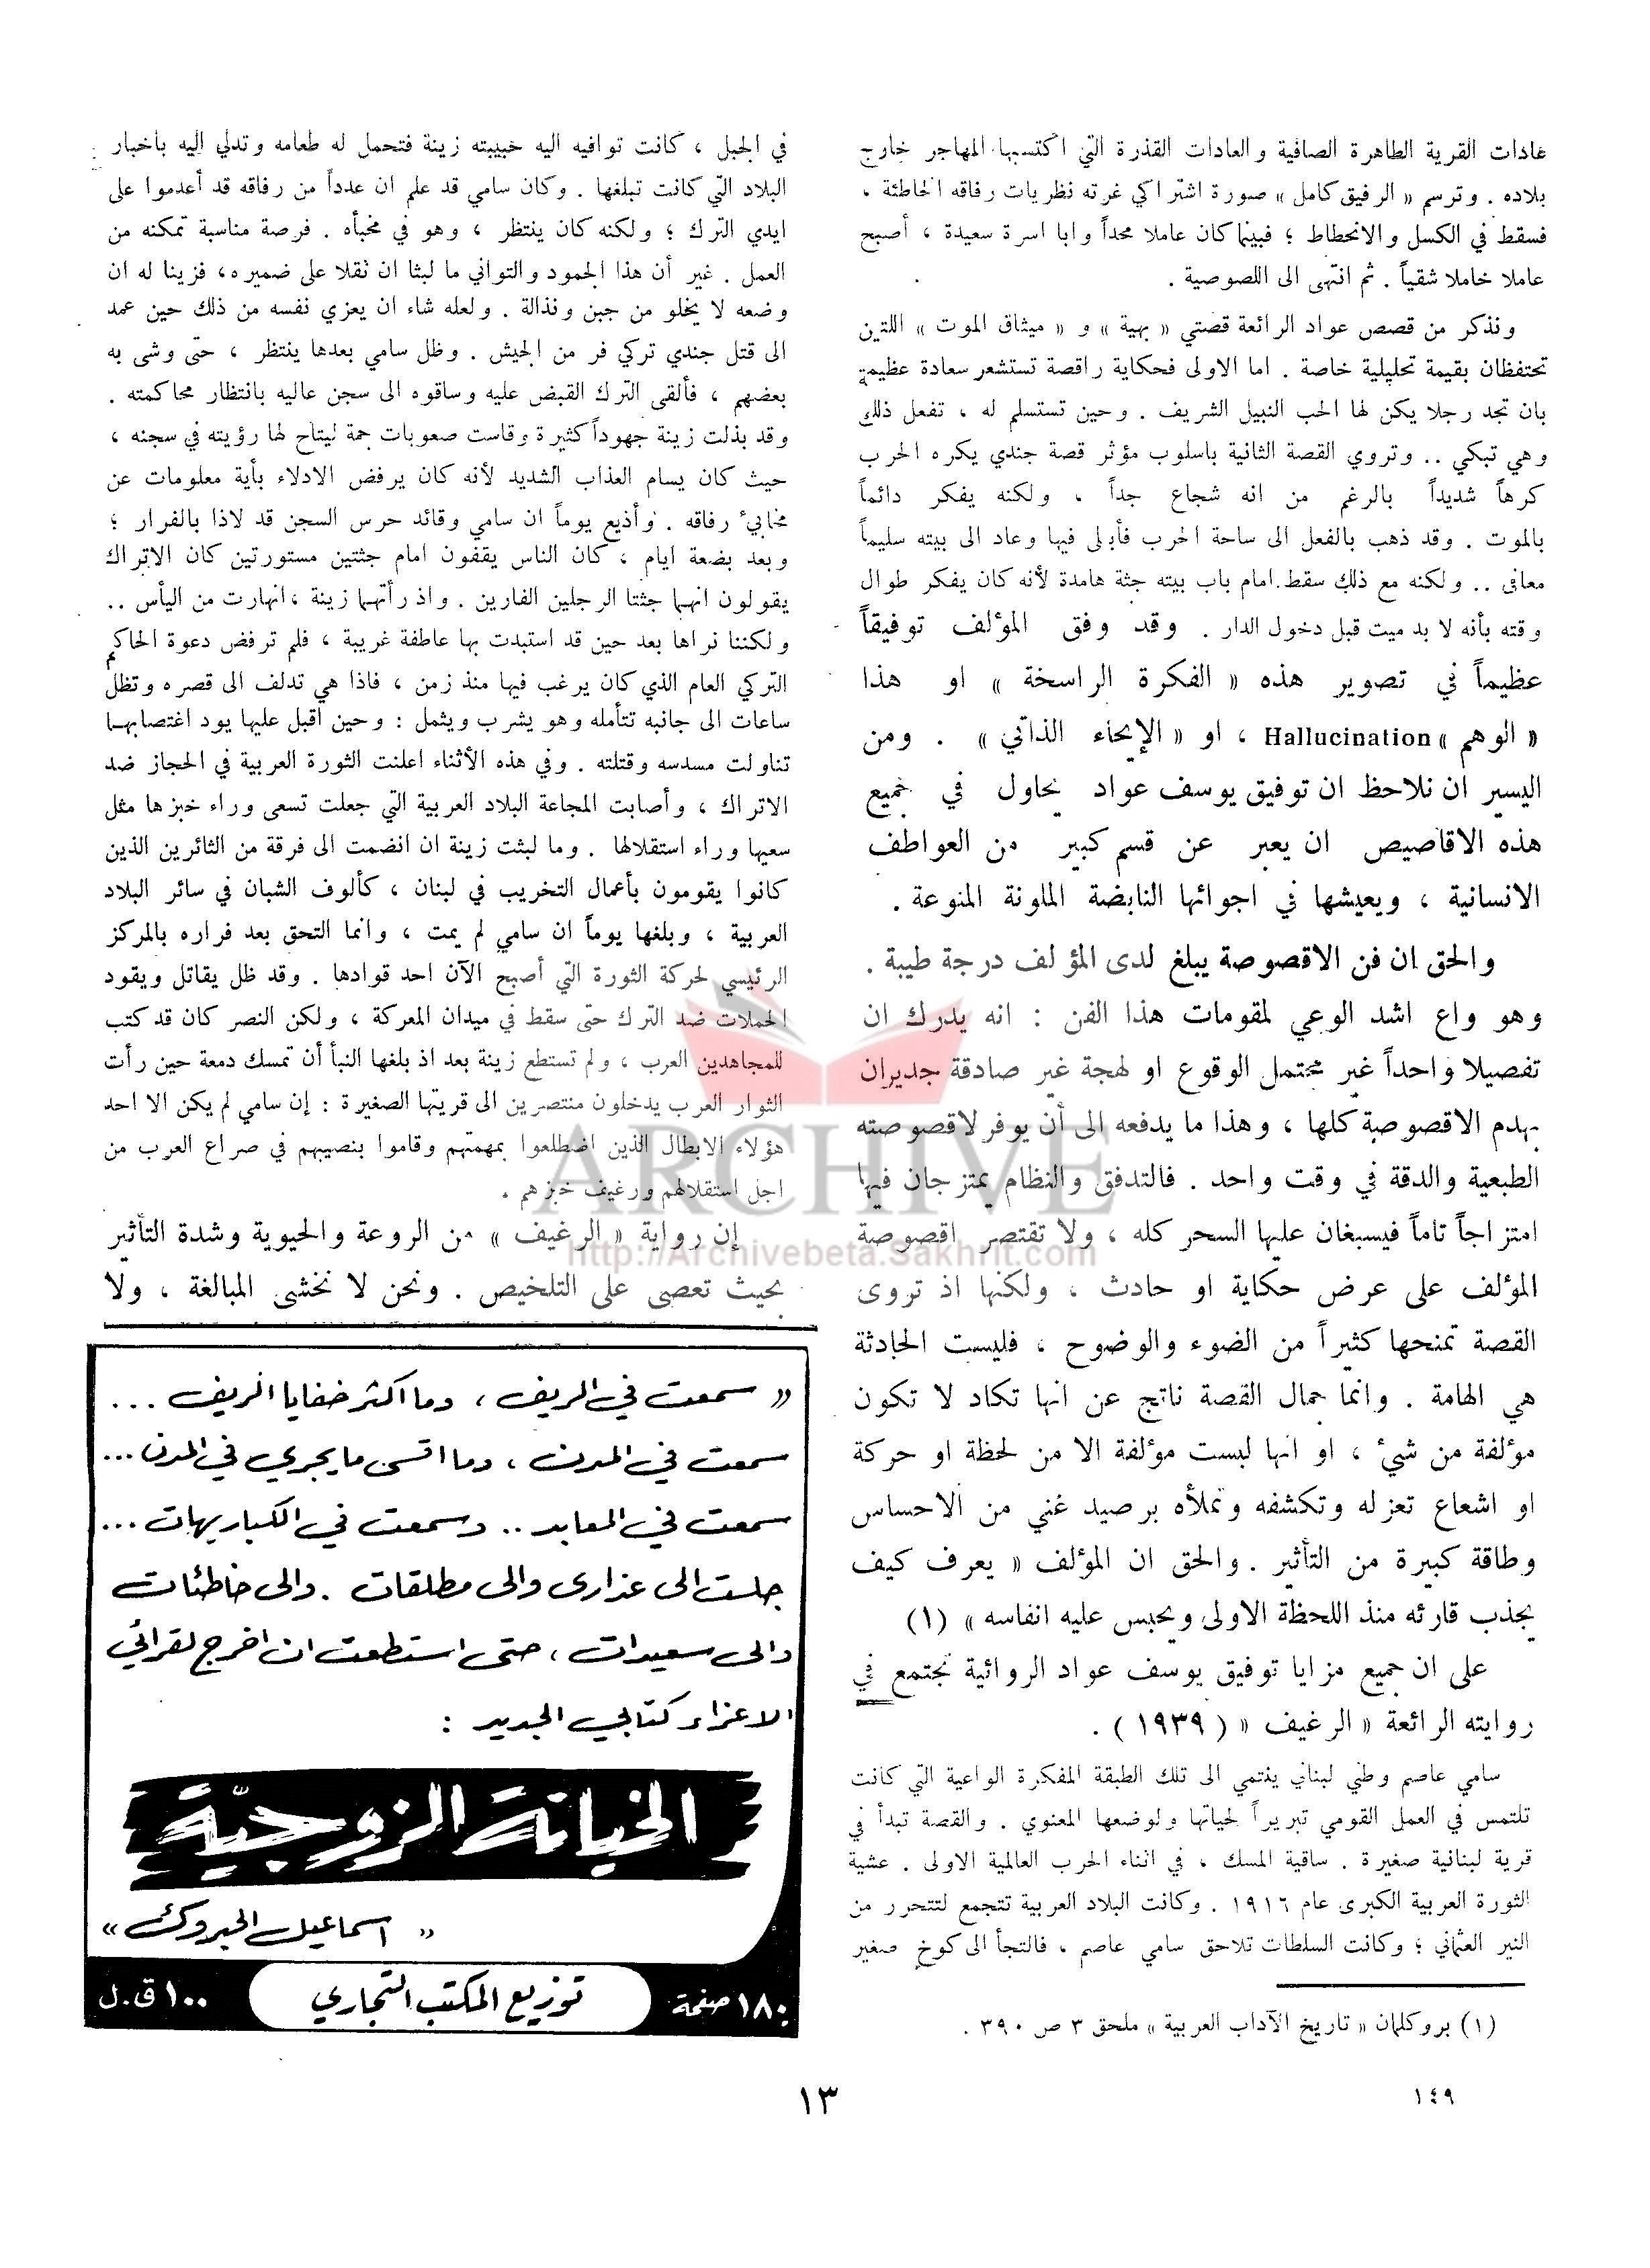 عادات القرية الطاهرة الصافية والعادات القذرة التي اكتسبها المهاجر خارج
بلاده . وترسم « الرفيق كامل » صورة اشتراكي غرته نظريات رفاقه الخاطئة ،
فسقط في الكسل والانحطاط ؛ فبينما كان عاملا مجداً وابا اسرة سعيدة ، أصبح
عاملا خاملا شقياً . ثم انتهى الى اللصوصية .
ونذكر من قصص عواد الرائعة قصتي « بهية » و « ميثاق الموت » اللتين
تحتفظان بقيمة تحليلية خاصة . اما الاولى فحكاية راقصة تستشعر سعادة عظيمة
بان تجد رجلا يكن لها الحب النبيل الشريف . وحين تستسلم له ، تفعل ذلك
وهي تبكي .. وتروي القصة الثانية باسلوب مؤثر قصة جندي يكره الحرب
كرهاً شديداً بالرغم من انه شجاع جداً ، ولكنه يفكر دائماً
بالموت . وقد ذهب بالفعل الى ساحة الحرب فأبلى فيها وعاد الى بيته سليماً
معافى .. ولكنه مع ذلك سقط امام باب بيته جثة هامدة لأنه كان يفكر طوال
وقته بأنه لا بد ميت قبل دخول الدار . وقد وفق المؤلف توفيقاً
عظيماً في تصوير هذه « الفكرة الراسخة » او هذا
« الوهم » Hallucination ، او « الإيحاء الذاتي » . ومن
اليسير ان نلاحظ ان توفيق يوسف عواد يحاول في جميع
هذه الاقاصيص ان يعبر عن قسم كبير من العواطف
الانسانية ، ويعيشها في اجوائها النابضة الملونة المنوعة .
والحق ان فن الاقصوصة يبلغ لدى المؤلف درجة طيبة .
وهو واع اشد الوعي لمقومات هذا الفن : انه يدرك ان
تفصيلا واحداً غير محتمل الوقوع او لهجة غير صادقة جديران
بهدم الاقصوصة كلها ، وهذا ما يدفعه الى أن يوفر لاقصوصته
الطبعية والدقة في وقت واحد . فالتدفق والنظام يمتزجان فيها
امتزاجاً تاماً فيسبغان عليها السحر كله ، ولا تقتصر اقصوصة
المؤلف على عرض حكاية او حادث ، ولكنها اذ تروى
القصة تمنحها كثيراً من الضوء والوضوح ، فليست الحادثة
هي الهامة . وانما جمال القصة ناتج عن انها تكاد لا تكون
مؤلفة من شيء ، او انها ليست مؤلفة الا من لحظة او حركة
او اشعاع تعزله وتكشفه وتملأه برصيد غني من الاحساس
وطاقة كبيرة من التأثير . والحق ان المؤلف « يعرف كيف
يجذب قارئه منذ اللحظة الاولى ويحبس عليه انفاسه » (١)
على ان جميع مزايا توفيق يوسف عواد الروائية تجتمع في
روايته الرائعة « الرغيف » ( ١٩٣٩ ) .
سامي عاصم وطني لبناني ينتمي الى تلك الطبقة المفكرة الواعية التي كانت
تلتمس في العمل القومي تبريراً لحياتها ولوضعها المعنوي . والقصة تبدأ في
قرية لبنانية صغيرة . ساقية المسك ، في اثناء الحرب العالمية الاولى . عشية
الثورة العربية الكبرى عام ١٩١٦ . وكانت البلاد العربية تتجمع لتتحرر من
النير العثماني ؛ وكانت السلطات تلاحق سامي عاصم ، فالتجأ الى كوخ صغير
(١) بروكلمان « تاريخ الآداب العربية » ملحق ٣ ص ٣٩٠ .
في الجبل ، كانت توافيه اليه حبيبته زينة فتحمل له طعامه وتدلي اليه باخبار
البلاد التي كانت تبلغها . وكان سامي قد علم ان عدداً من رفاقه قد أعدموا على
ايدي الترك ؛ ولكنه كان ينتظر ، وهو في مخبأه . فرصة مناسبة تمكنه من
العمل . غير أن هذا الجمود والتواني ما لبثا ان ثقلا على ضميره، فزينا له ان
وضعه لا يخلو من جبن ونذالة . ولعله شاء ان يعزي نفسه من ذلك حين عمد
الى قتل جندي تركي فر من الجيش . وظل سامي بعدها ينتظر ، حتى وشى به
بعضهم ، فألقى الترك القبض عليه وساقوه الى سجن عاليه بانتظار محاكمته .
وقد بذلت زينة جهوداً كثيرة وقاست صعوبات جمة ليتاح لها رؤيته في سجنه ،
حيث كان يسام العذاب الشديد لأنه كان يرفض الادلاء بأية معلومات عن
مخابئ رفاقه . وأذيع يوماً ان سامي وقائد حرس السجن قد لاذا بالفرار ؛
وبعد بضعة ايام ، كان الناس يقفون امام جثتين مستورتين كان الاتراك
يقولون انهما جثتا الرجلين الفارين . واذ رأتهما زينة ، انهارت من اليأس ..
ولكننا نراها بعد حين قد استبدت بها عاطفة غريبة ، فلم ترفض دعوة الحاكم
التركي العام الذي كان يرغب فيها منذ زمن ، فاذا هي تدلف الى قصره وتظل
ساعات الى جانبه تتأمله وهو يشرب ويثمل : وحين اقبل عليها يود اغتصابها
تناولت مسدسه وقتلته . وفي هذه الأثناء اعلنت الثورة العربية في الحجاز ضد
الاتراك ، وأصابت المجاعة البلاد العربية التي جعلت تسعى وراء خبزها مثل
سعيها وراء استقلالها . وما لبثت زينة ان انضمت الى فرقة من الثائرين الذين
كانوا يقومون بأعمال التخريب في لبنان ، كألوف الشبان في سائر البلاد
العربية ، وبلغها يوماً ان سامي لم يمت ، وانما التحق بعد فراره بالمركز
الرئيسي لحركة الثورة التي أصبح الآن احد قوادها . وقد ظل يقاتل ويقود
الحملات ضد الترك حتى سقط في ميدان المعركة ، ولكن النصر كان قد كتب
للمجاهدين العرب ، ولم تستطع زينة بعد اذ بلغها النبأ أن تمسك دمعة حين رأت
الثوار العرب يدخلون منتصرين الى قريتها الصغيرة : إن سامي لم يكن الا احد
هؤلاء الابطال الذين اضطلعوا بمهمتهم وقاموا بنصيبهم في صراع العرب من
اجل استقلالهم ورغيف خبزهم .
إن رواية « الرغيف » من الروعة والحيوية وشدة التأثير
بحيث تعصى على التلخيص . ونحن لا نخشى المبالغة ، ولا
« سمعت في الريف ، وما اكثر خفايا الريف ...
سمعت في المدن ، وما اقسى ما يجري في المدن ...
سمعت في المعابد .. وسمعت في الكباريهات ...
جلست الى عذارى والى مطلقات . والى خاطئات
والى سعيدات ، حتى استطعت ان اخرج لقرائي
الاعزاء كتابي الجديد :
الخيانة الزوجيّة
« اسماعيل الحبروك »
١٨٠ صفحة
توزيع المكتب التجاري
١٠٠ ق.ل
١٣
١٤٩
ARCHIVE
http://Archivebeta.Sakhrit.com